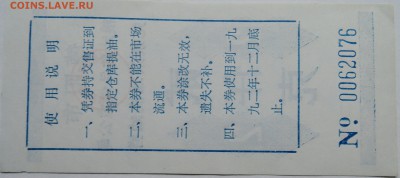 COINS.LAVE.RU
使用说明
一、凭券持交售证到
指定仓库提油。
二、本券不能在市场
流通。
三、本券涂改无效，
遗失不补。
四、本券使用到一九
九二年十二月底
止。
№ 0062076